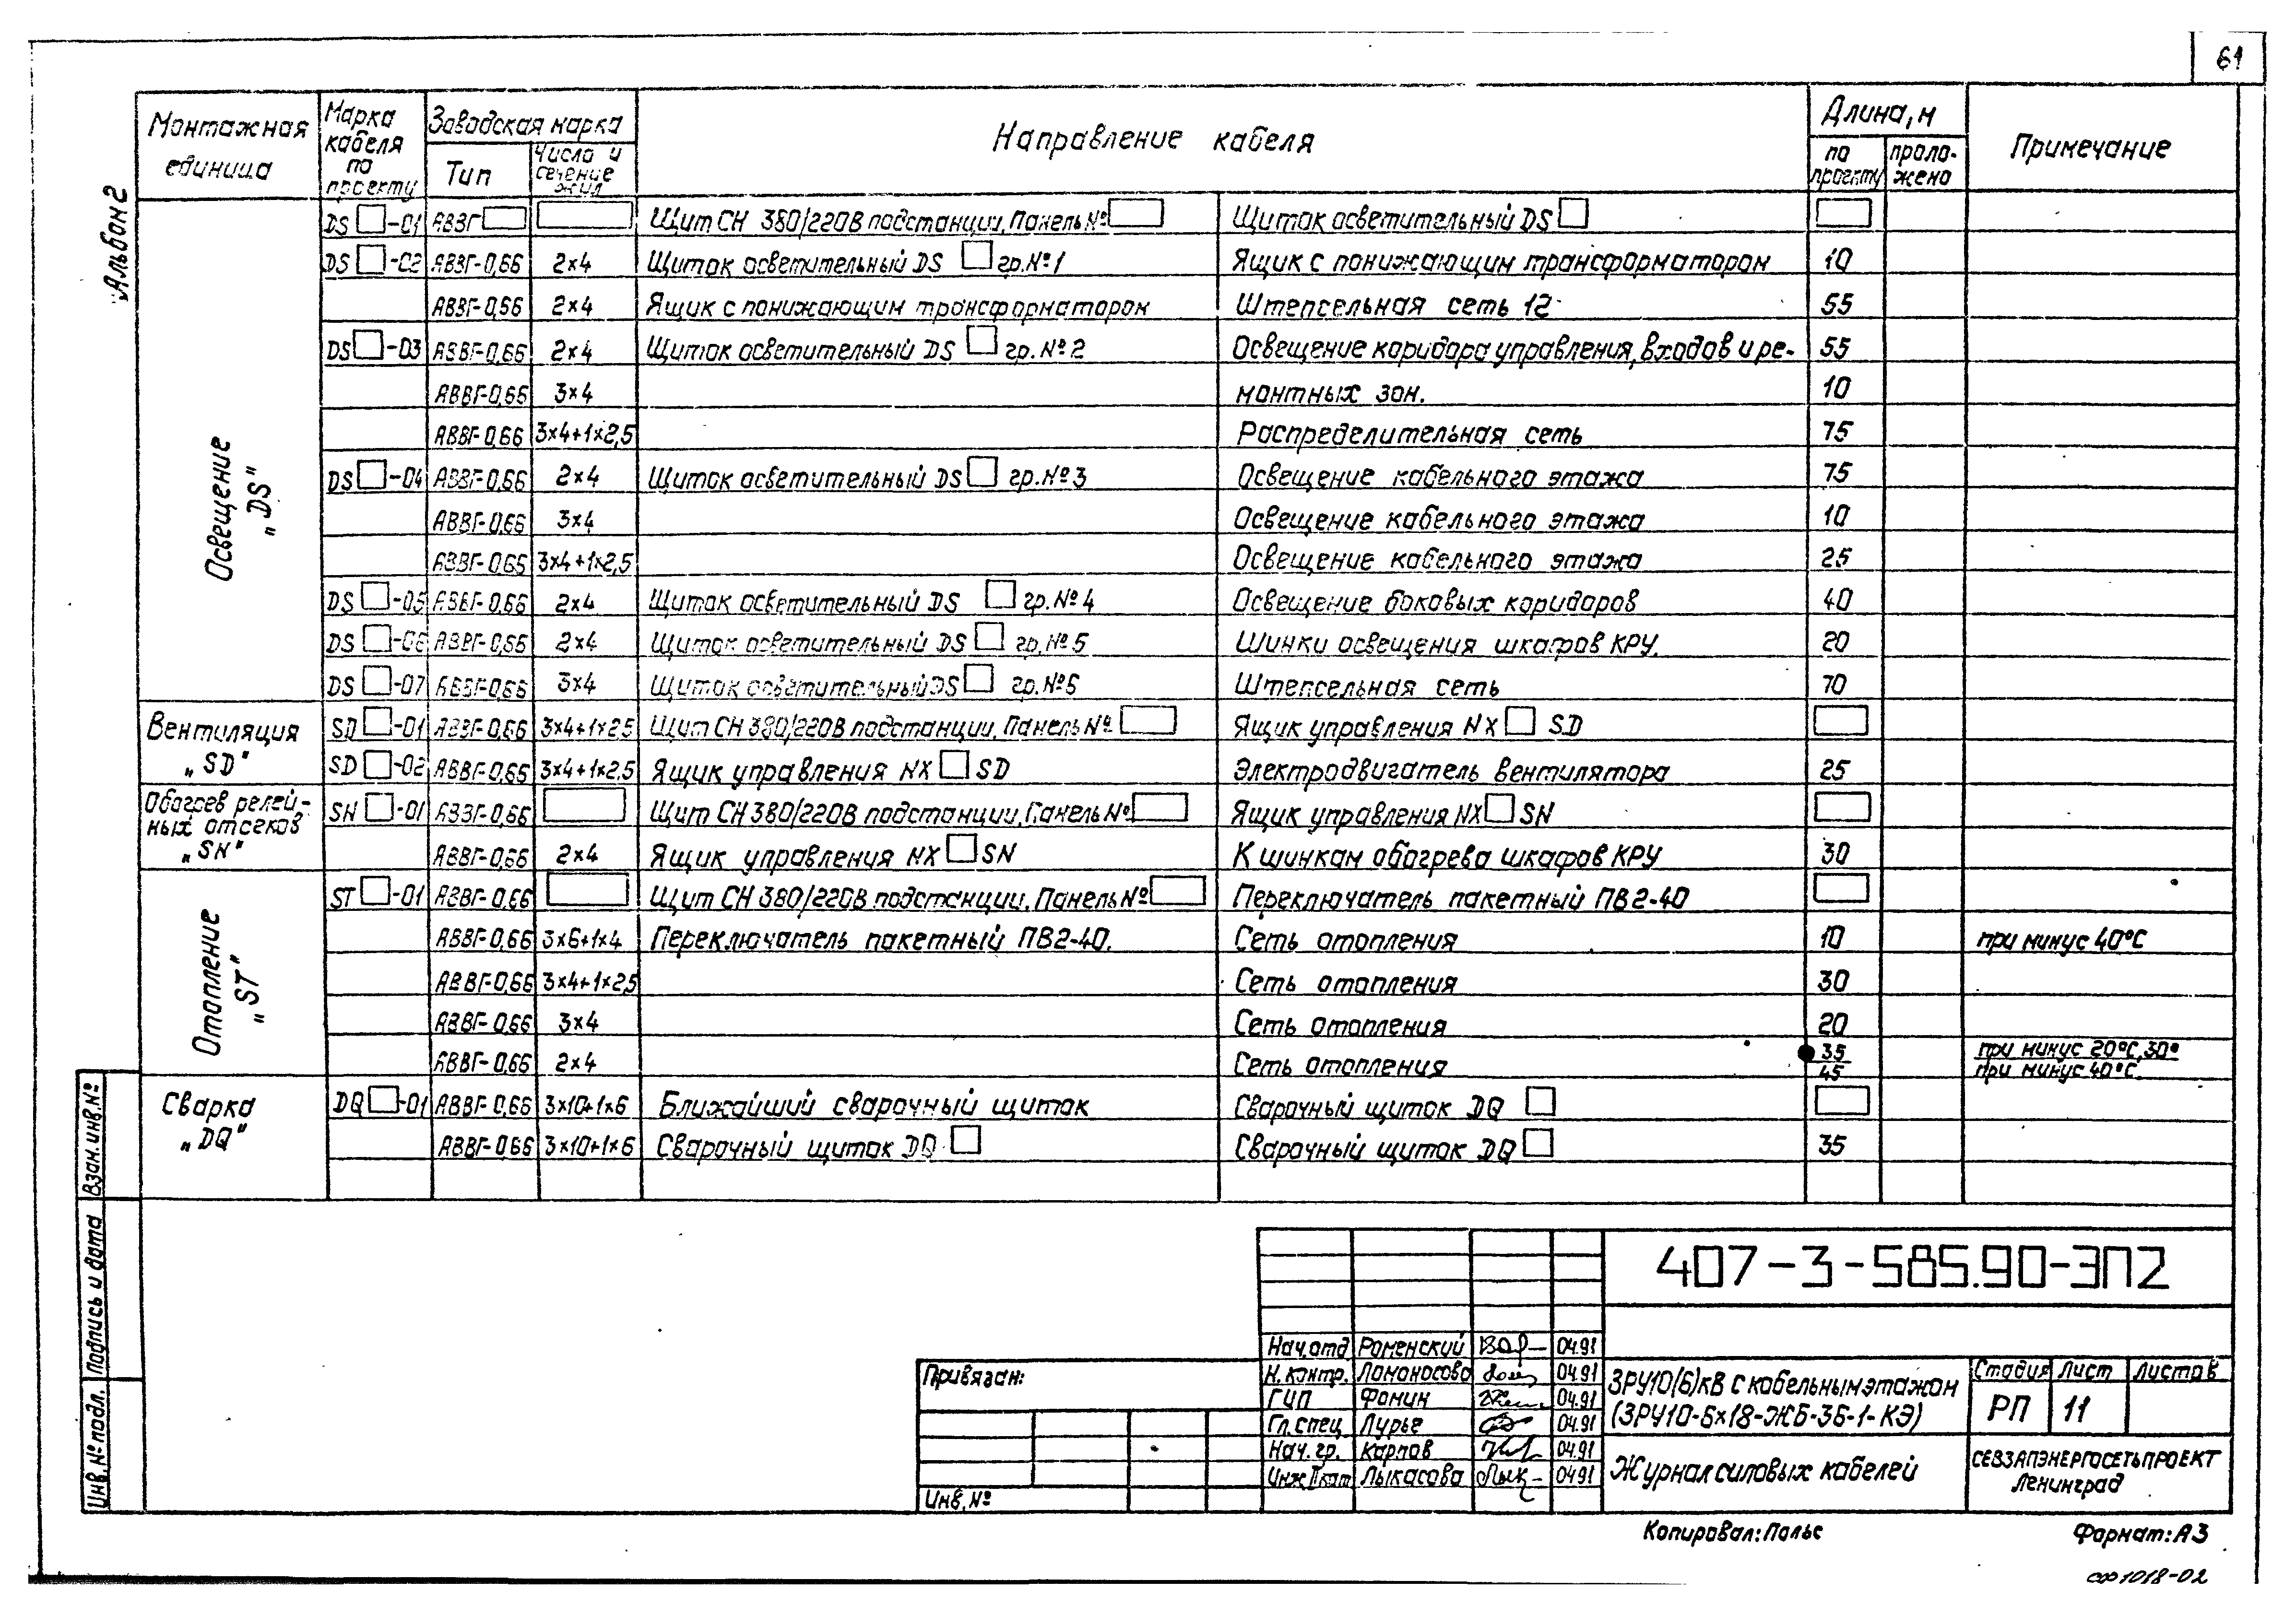 61
Альбом 2
Монтажная единица | Марка кабеля по проекту | Заводская марка | Направление кабеля | Длина, м | Примечание
Тип | Число и сечение жил | по проекту | проложено
Освещение „DS"
DS □-01 | АВВГ □ | □ | Щит СН 380/220В подстанции, Панель № □ | Щиток осветительный DS □ | □
DS □-02 | АВВГ-0,66 | 2×4 | Щиток осветительный DS □ гр.№1 | Ящик с понижающим трансформатором | 10
АВВГ-0,66 | 2×4 | Ящик с понижающим трансформатором | Штепсельная сеть 12 | 55
DS □-03 | АВВГ-0,66 | 2×4 | Щиток осветительный DS □ гр.№2 | Освещение коридора управления, входов и ре- | 55
АВВГ-0,66 | 3×4 | монтных зон. | 10
АВВГ-0,66 | 3×4+1×2,5 | Распределительная сеть | 75
DS □-04 | АВВГ-0,66 | 2×4 | Щиток осветительный DS □ гр.№3 | Освещение кабельного этажа | 75
АВВГ-0,66 | 3×4 | Освещение кабельного этажа | 10
АВВГ-0,66 | 3×4+1×2,5 | Освещение кабельного этажа | 25
DS □-05 | АВВГ-0,66 | 2×4 | Щиток осветительный DS □ гр.№4 | Освещение боковых коридоров | 40
DS □-06 | АВВГ-0,66 | 2×4 | Щиток осветительный DS □ гр.№5 | Шинки освещения шкафов КРУ. | 20
DS □-07 | АВВГ-0,66 | 3×4 | Щиток осветительный DS □ гр.№6 | Штепсельная сеть | 70
Вентиляция „SD"
SD □-01 | АВВГ-0,66 | 3×4+1×2,5 | Щит СН 380/220В подстанции, Панель № □ | Ящик управления NX □ SD | □
SD □-02 | АВВГ-0,66 | 3×4+1×2,5 | Ящик управления NX □ SD | Электродвигатель вентилятора | 25
Обогрев релейных отсеков „SH"
SH □-01 | АВВГ-0,66 | □ | Щит СН 380/220В подстанции, Панель № □ | Ящик управления NX □ SH | □
АВВГ-0,66 | 2×4 | Ящик управления NX □ SH | К шинкам обогрева шкафов КРУ | 30
Отопление „ST"
ST □-01 | АВВГ-0,66 | □ | Щит СН 380/220В подстанции, Панель № □ | Переключатель пакетный ПВ2-40 | □
АВВГ-0,66 | 3×6+1×4 | Переключатель пакетный ПВ2-40. | Сеть отопления | 10 | при минус 40°С
АВВГ-0,66 | 3×4+1×2,5 | Сеть отопления | 30
АВВГ-0,66 | 3×4 | Сеть отопления | 20
АВВГ-0,66 | 2×4 | Сеть отопления | 35/45 | при минус 20°С, 30° / при минус 40°С.
Сварка „DQ"
DQ □-01 | АВВГ-0,66 | 3×10+1×6 | Ближайший сварочный щиток | Сварочный щиток DQ □ | □
АВВГ-0,66 | 3×10+1×6 | Сварочный щиток DQ □ | Сварочный щиток DQ □ | 35
Взам. инв.№
Подпись и дата
Инв.№ подл.
407-3-585.90-ЭП2
Привязан:
Инв.№
Нач.отд | Роменский | 04.91
Н.контр. | Ломоносова | 04.91
ГИП | Фомин | 04.91
Гл.спец | Лурье | 04.91
Нач.гр. | Карпов | 04.91
Инж.II кат | Лыкасова | 04.91
ЗРУ10(6)кВ с кабельным этажом
(ЗРУ10-6×18-ЖБ-36-1-КЭ)
Журнал силовых кабелей
Стадия | Лист | Листов
РП | 11
СЕВЗАПЭНЕРГОСЕТЬПРОЕКТ
Ленинград
Копировал: Польс
Формат: А3
сф1018-02